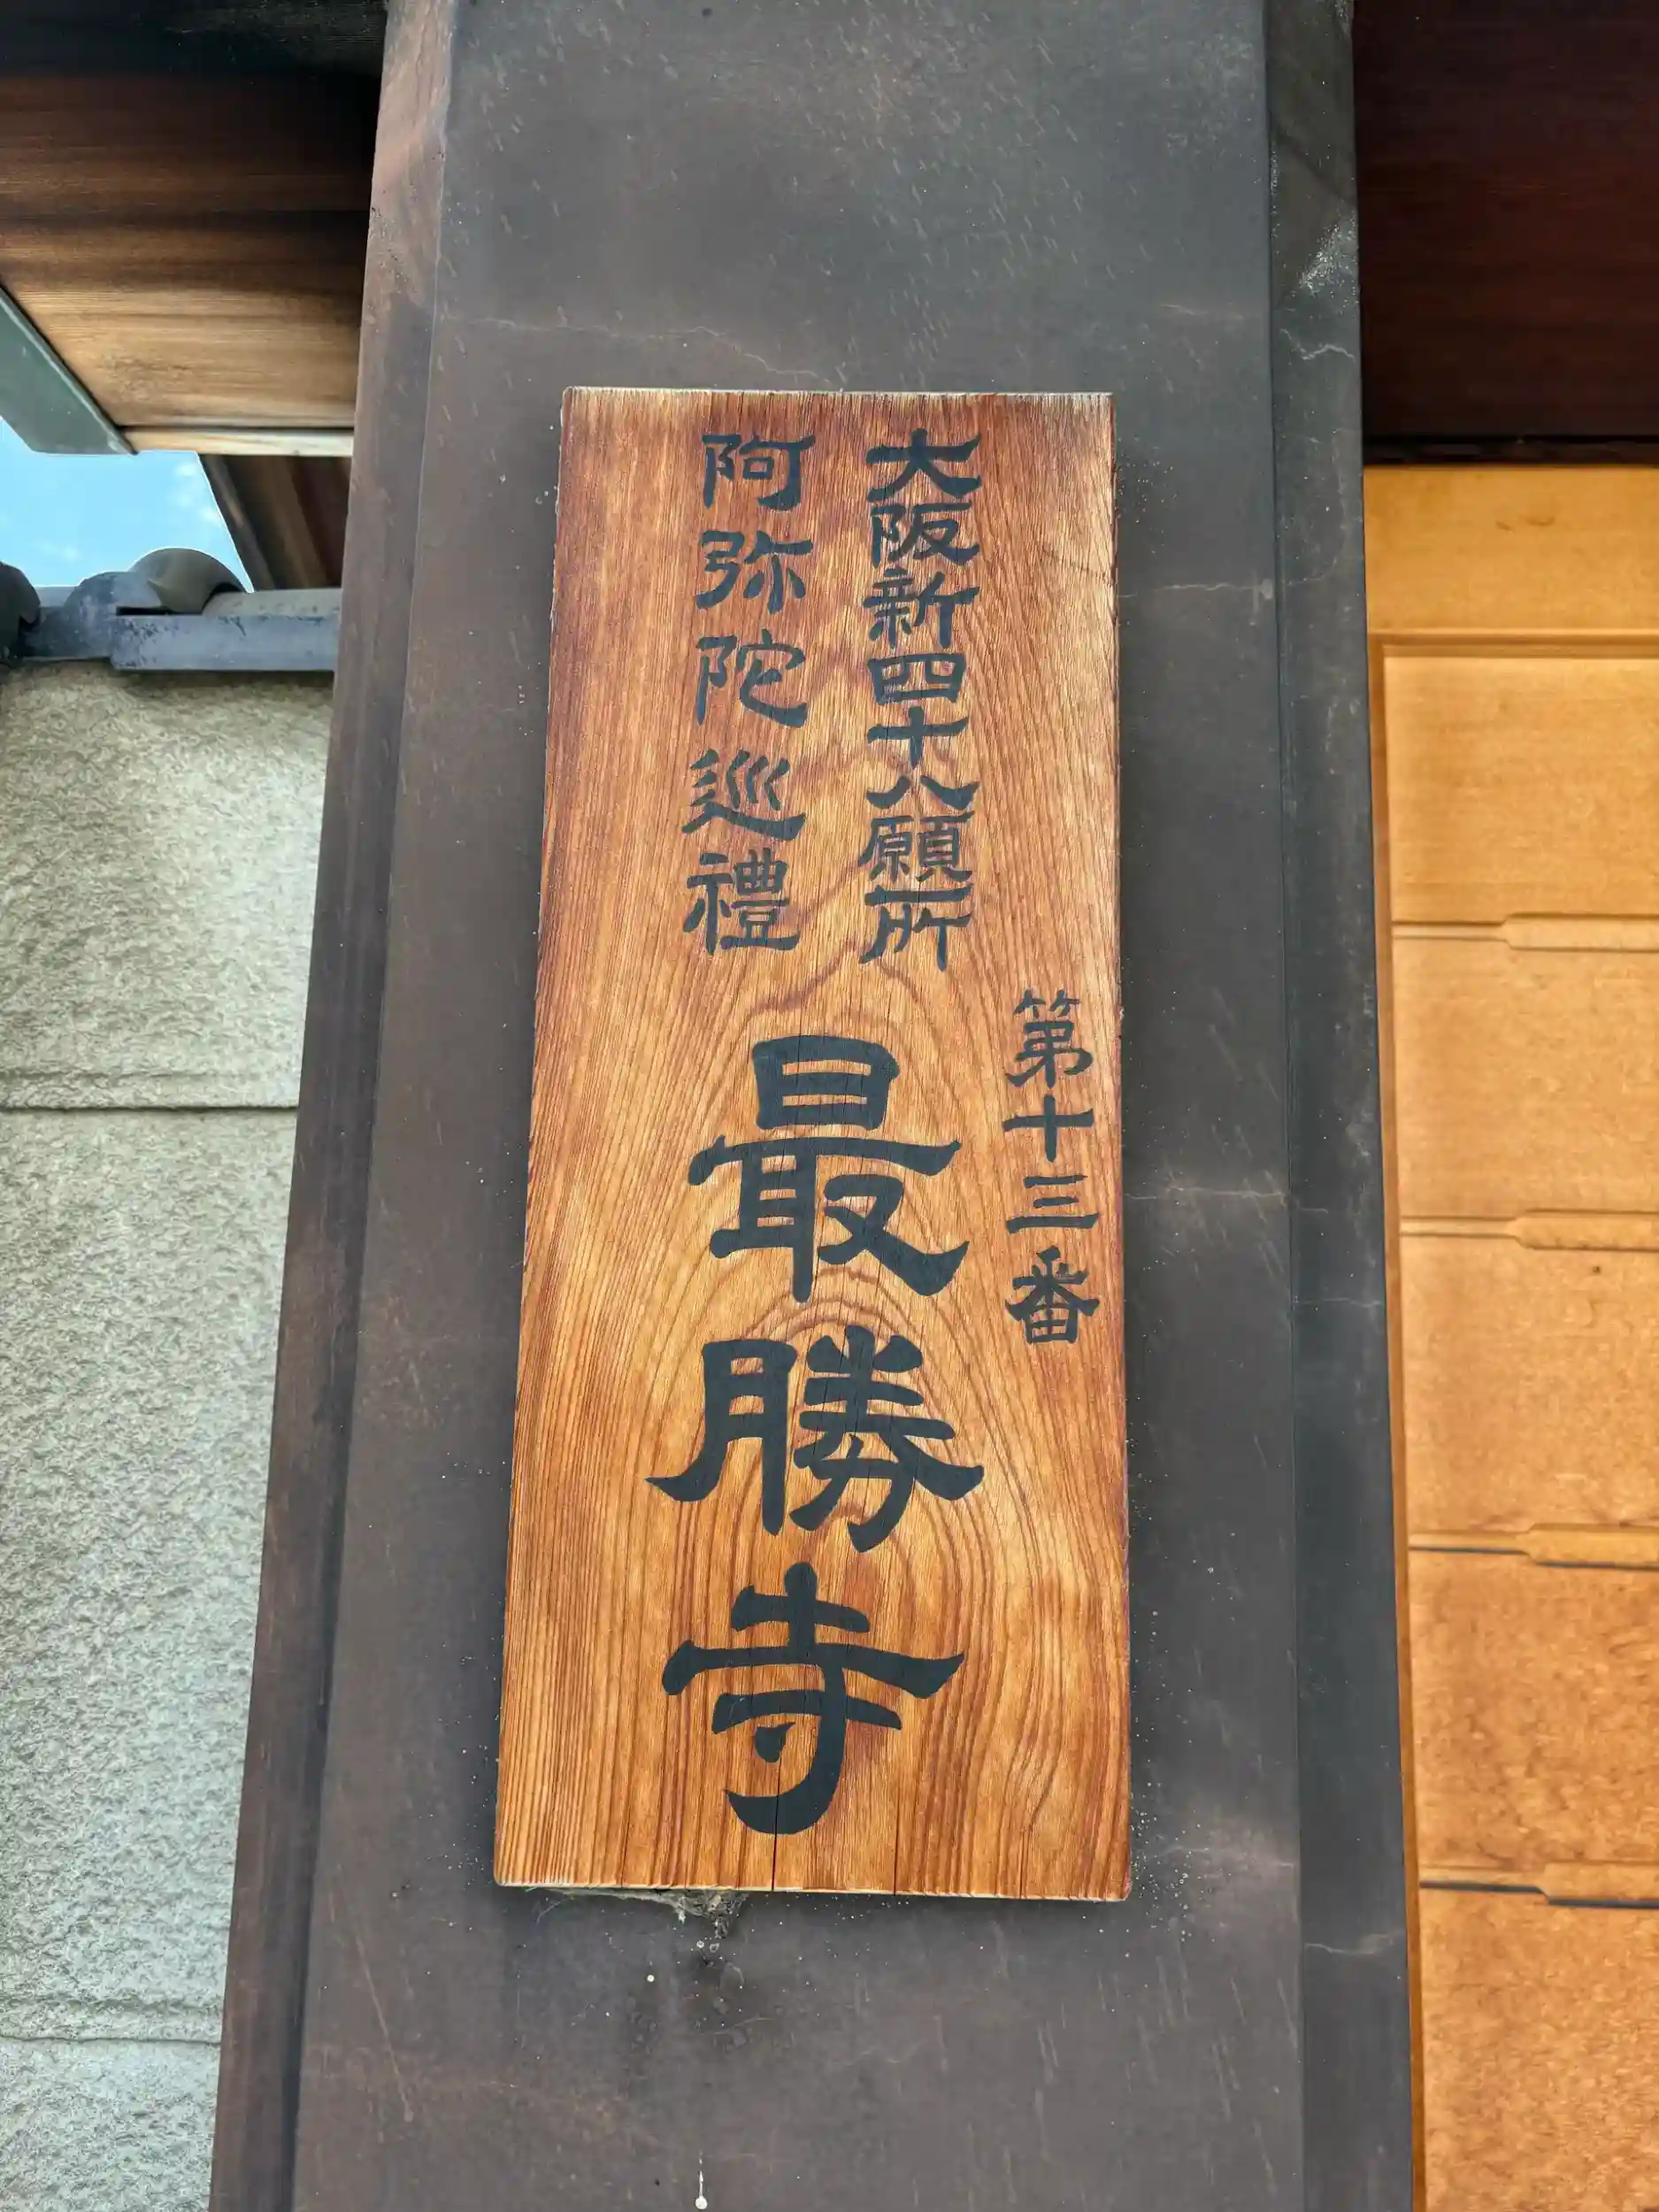 大阪新四十八願所
阿弥陀巡禮
第十三番
最勝寺